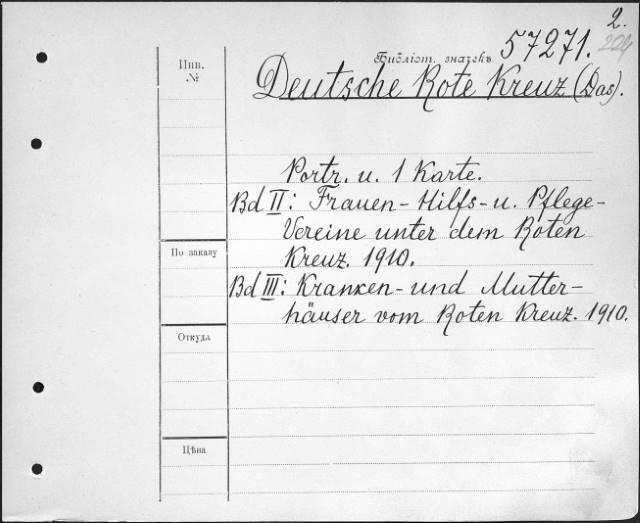 2.
204
Инв.
№
Библіот. значекъ 57271.
Deutsche Rote Kreuz (Das).
Portr. u. 1 Karte.
Bd II: Frauen-Hilfs-u. Pflege-
Vereine unter dem Roten
Kreuz. 1910.
Bd III: Kranken-und Mutter-
häuser vom Roten Kreuz. 1910.
По заказу
Откуда
Цѣна